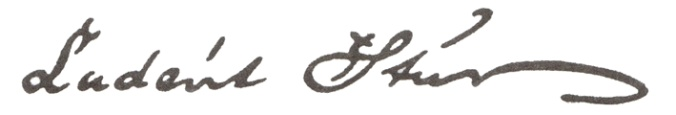 Ľudevít Štúr